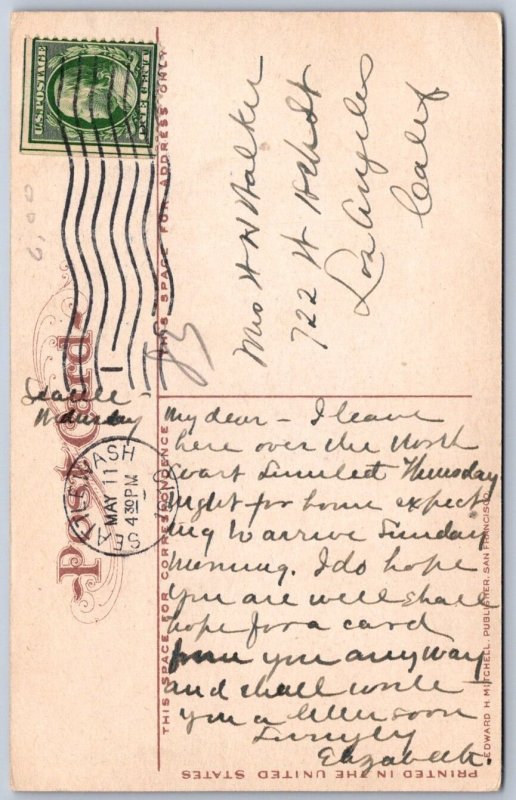 U.S. POSTAGE
ONE CENT
6.00
Post Card
THIS SPACE FOR CORRESPONDENCE
THIS SPACE FOR ADDRESS ONLY
SEATTLE WASH
MAY 11
4 30 PM
1
Seattle -
Wednesday
My dear - I leave
here over the North
Coast Limited Thursday
night for home expect
ing to arrive Sunday
Morning. I do hope
you are well shall
hope for a card
from you anyway
and shall write
you a letter soon
Lovingly
Elizabeth.
Mrs H W Walker
722 W
Los Angeles
Calif
EDWARD H. MITCHELL, PUBLISHER, SAN FRANCISCO.
PRINTED IN THE UNITED STATES